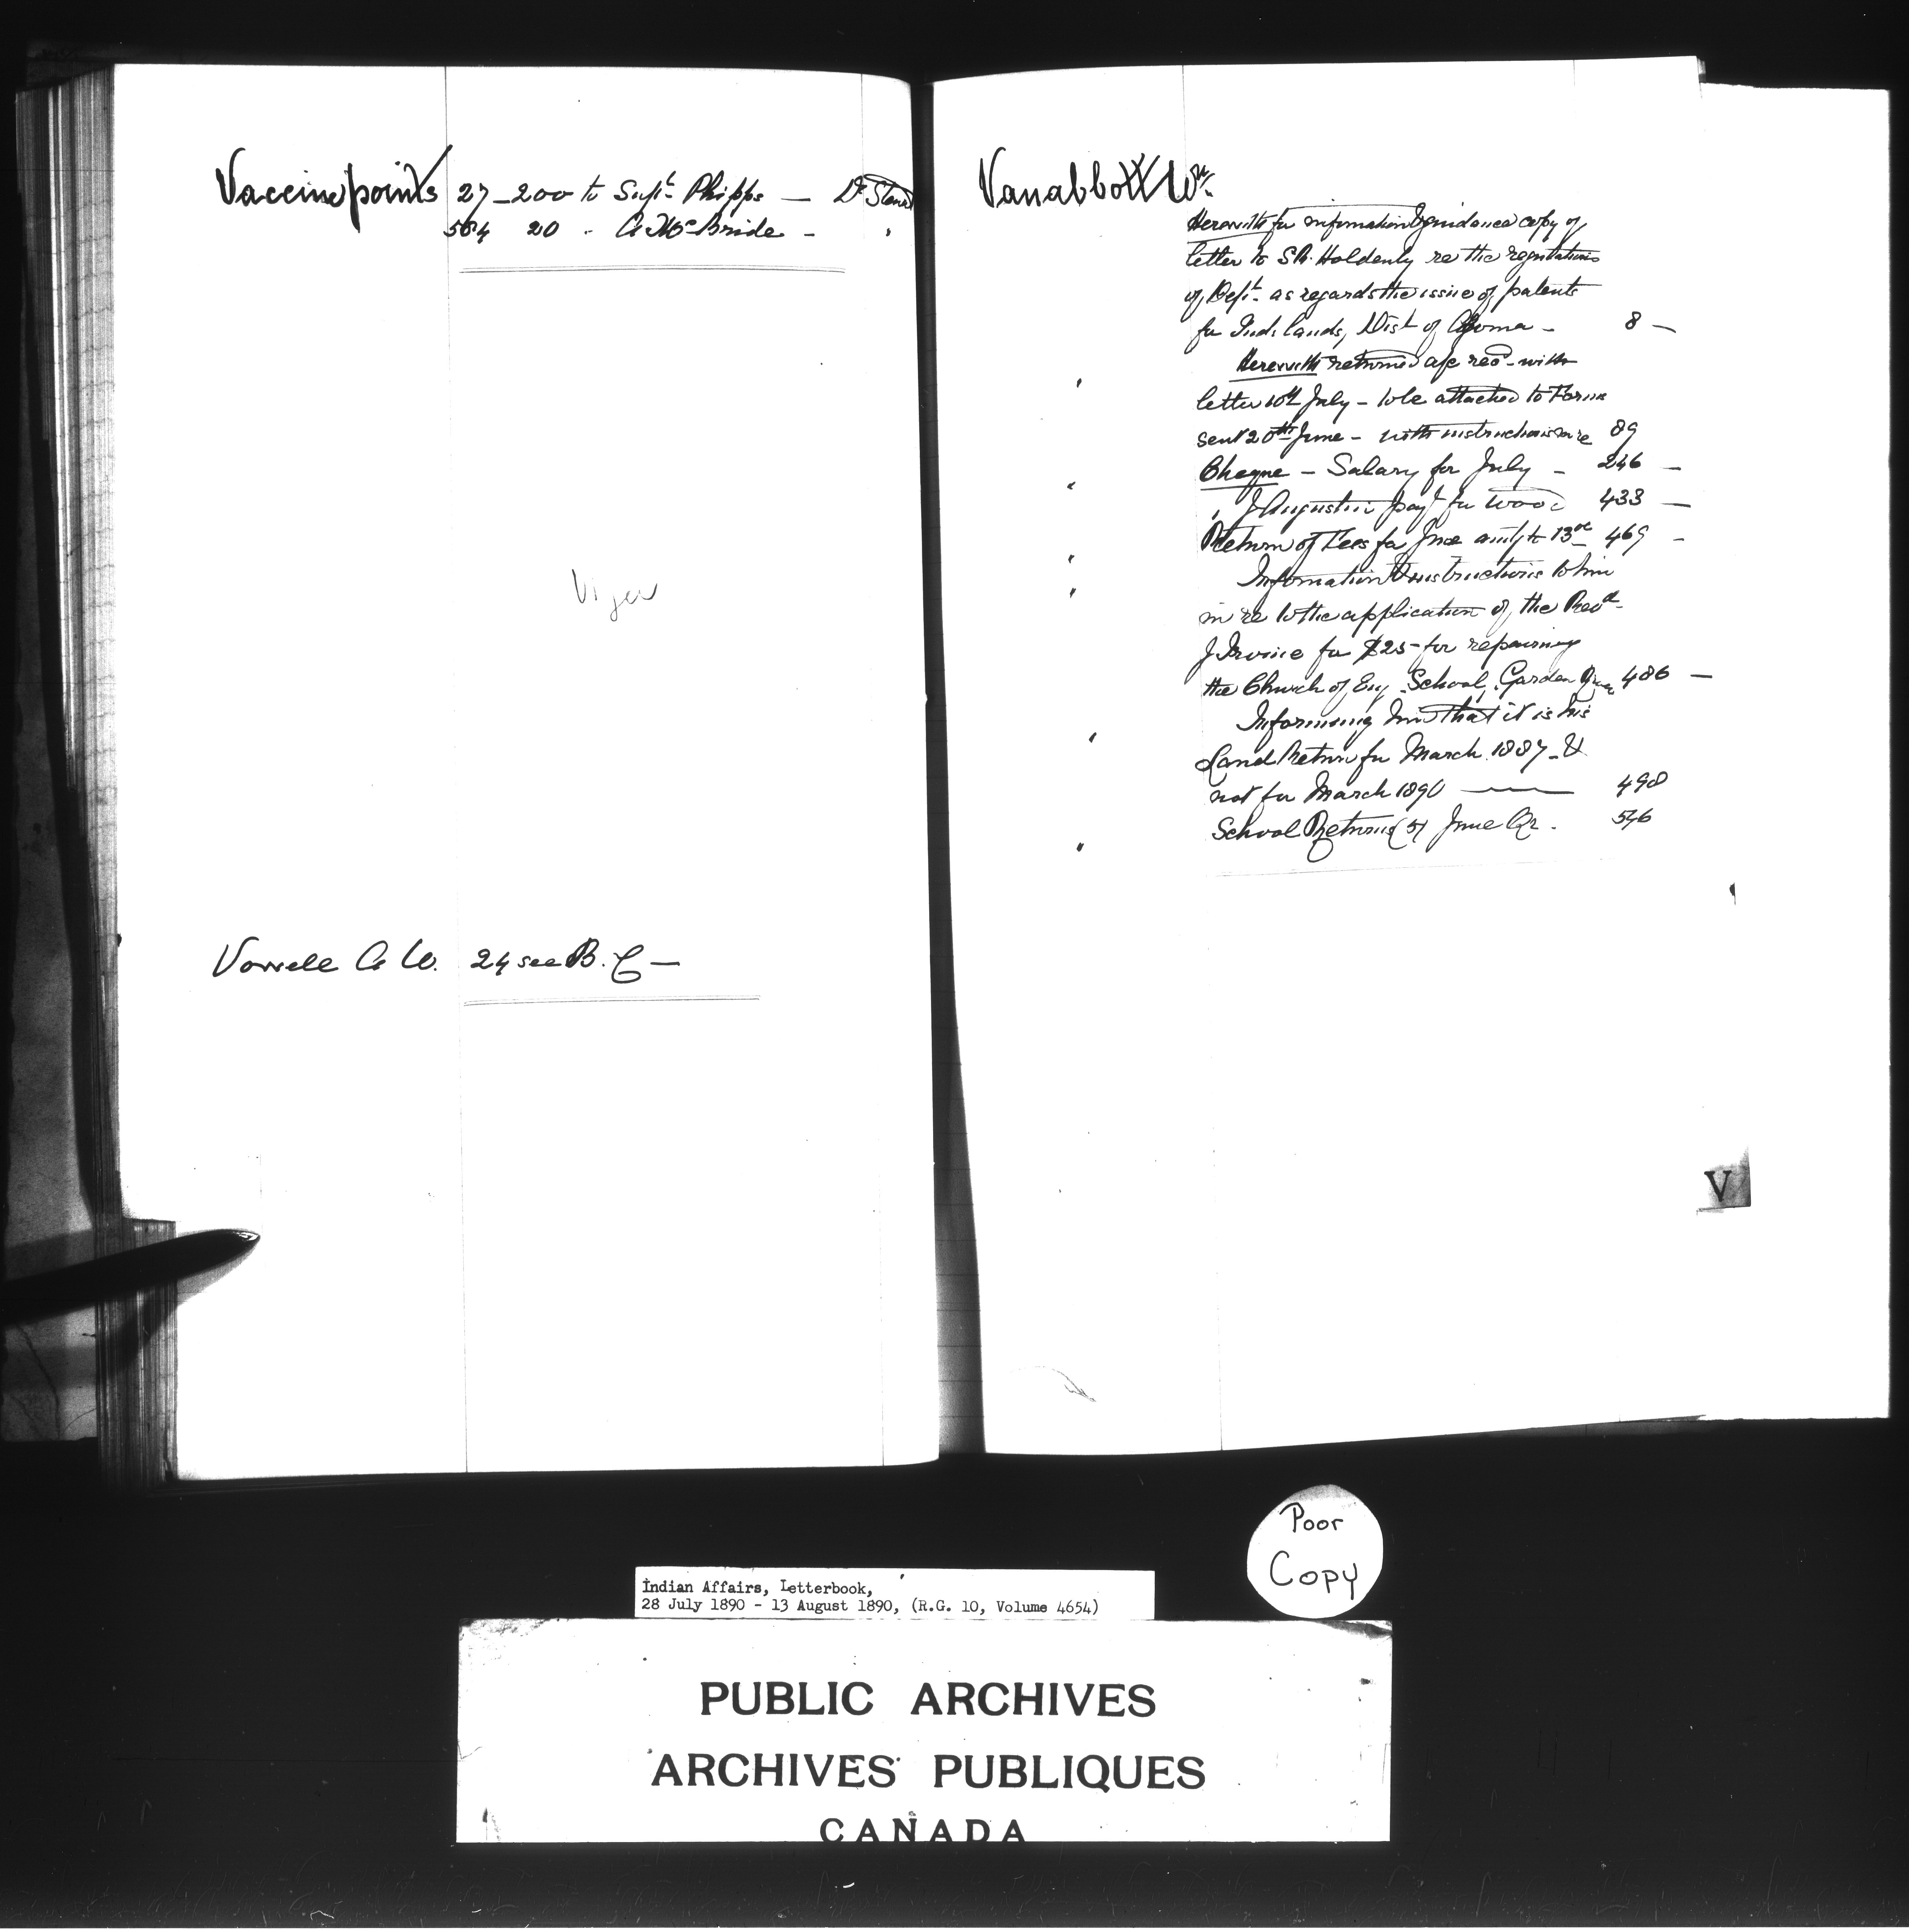 Vaccine points 27 - 200 to Supt. Phipps — Dr
564 20 " A McBride - "
Viger
Vowell A W. 24 see B. C —
Vanabbott Wm.
Herewith for information & guidance copy of
letter to re the regulations
of Dept. as regards the issue of patents
for Ind. lands, Dist of Algoma - 8 —
Herewith returned recd. with
letter 10th July - to be attached to Form
sent 20th June - with instructions re 89
Cheque - Salary for July - 246 —
" J Augustin payt for wood 433 —
Return of Fees for 469 -
Information & instructions to him
in re to the application of the Revd.
J Irvine for $25 - for repairing
the Church of Eng. School, Garden River 486 —
Informing him that it is his
Land Return for March 1887 - &
not for March 1890 — 498
School Returns (5) June Qr. 546
V
Poor
Copy
Indian Affairs, Letterbook,
28 July 1890 - 13 August 1890, (R.G. 10, Volume 4654)
PUBLIC ARCHIVES
ARCHIVES PUBLIQUES
CANADA